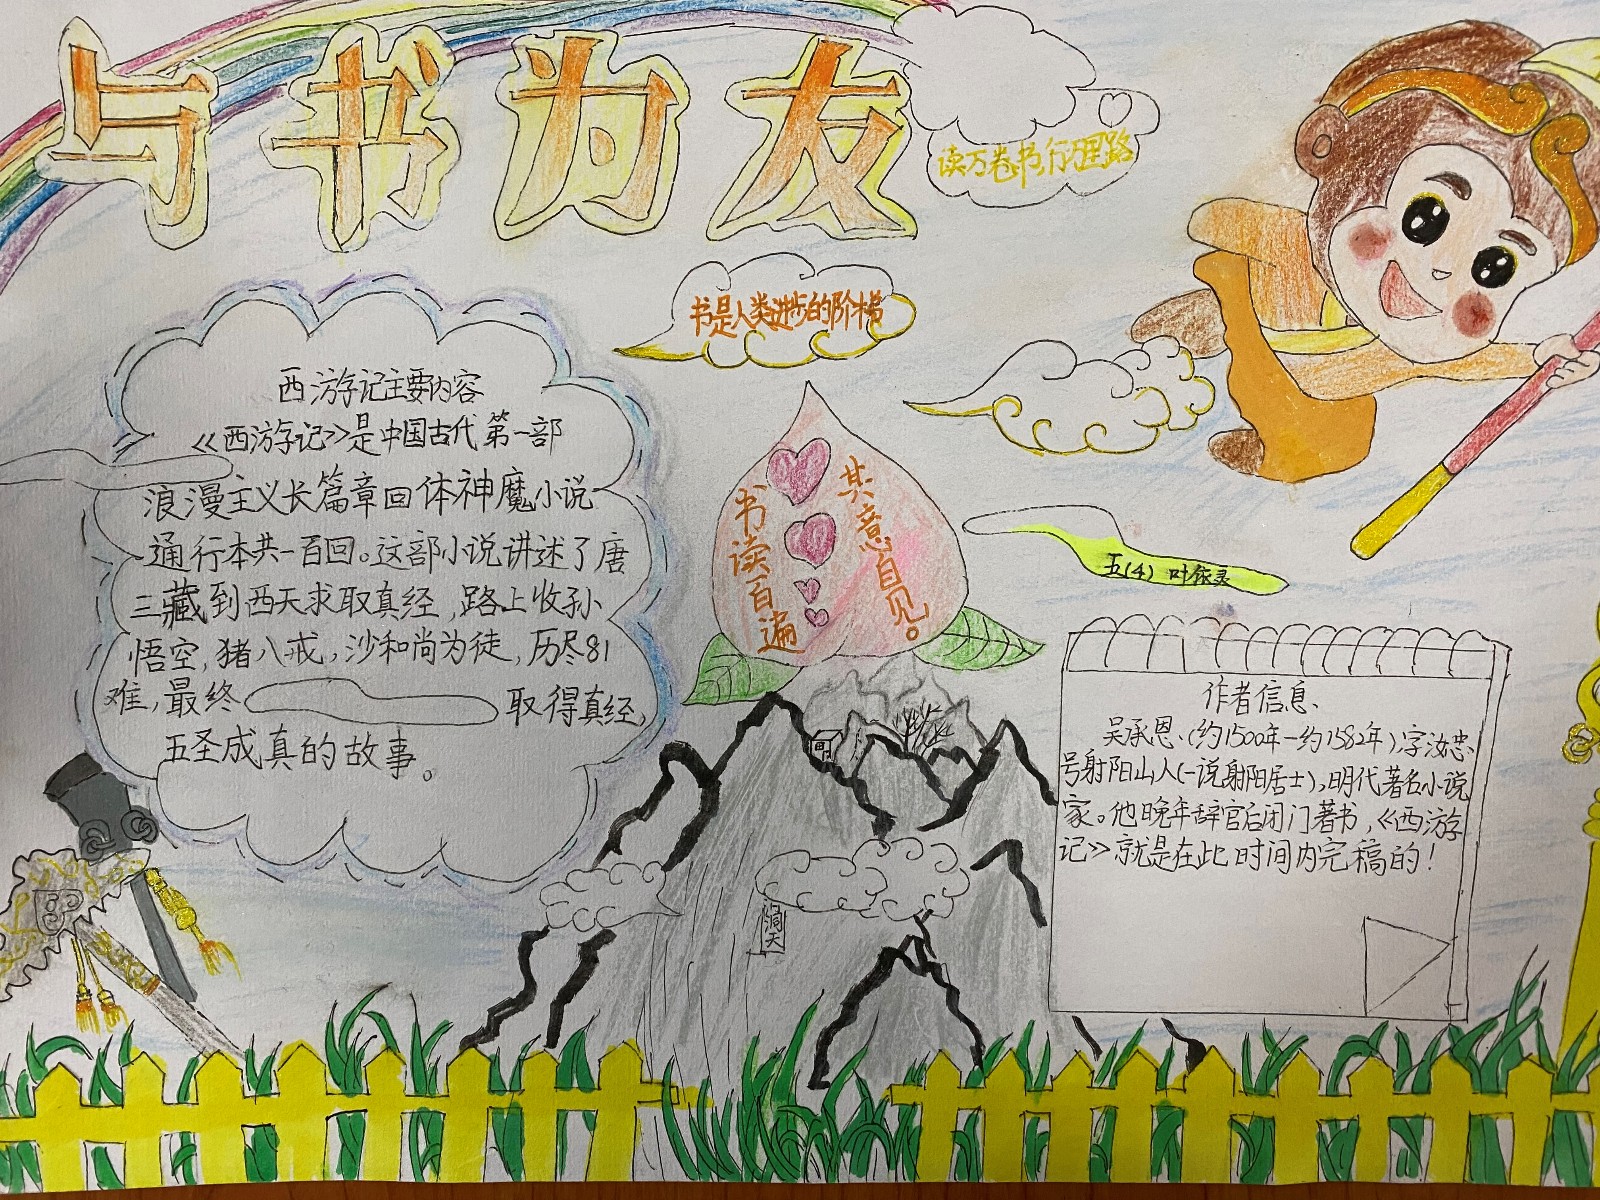 与书为友
读万卷书,行万里路
书是人类进步的阶梯
西游记主要内容
《西游记》是中国古代第一部
浪漫主义长篇章回体神魔小说
通行本共一百回。这部小说讲述了唐
三藏到西天求取真经,路上收孙
悟空,猪八戒,沙和尚为徒,历尽81
难,最终 取得真经,
五圣成真的故事。
书读百遍
其意自见。
五(4) 叶
作者信息、
吴承恩、(约1500年一约1582年),字汝忠
号射阳山人(一说射阳居士),明代著名小说
家。他晚年辞官后闭门著书,《西游
记》就是在此时间内完稿的!
洞天